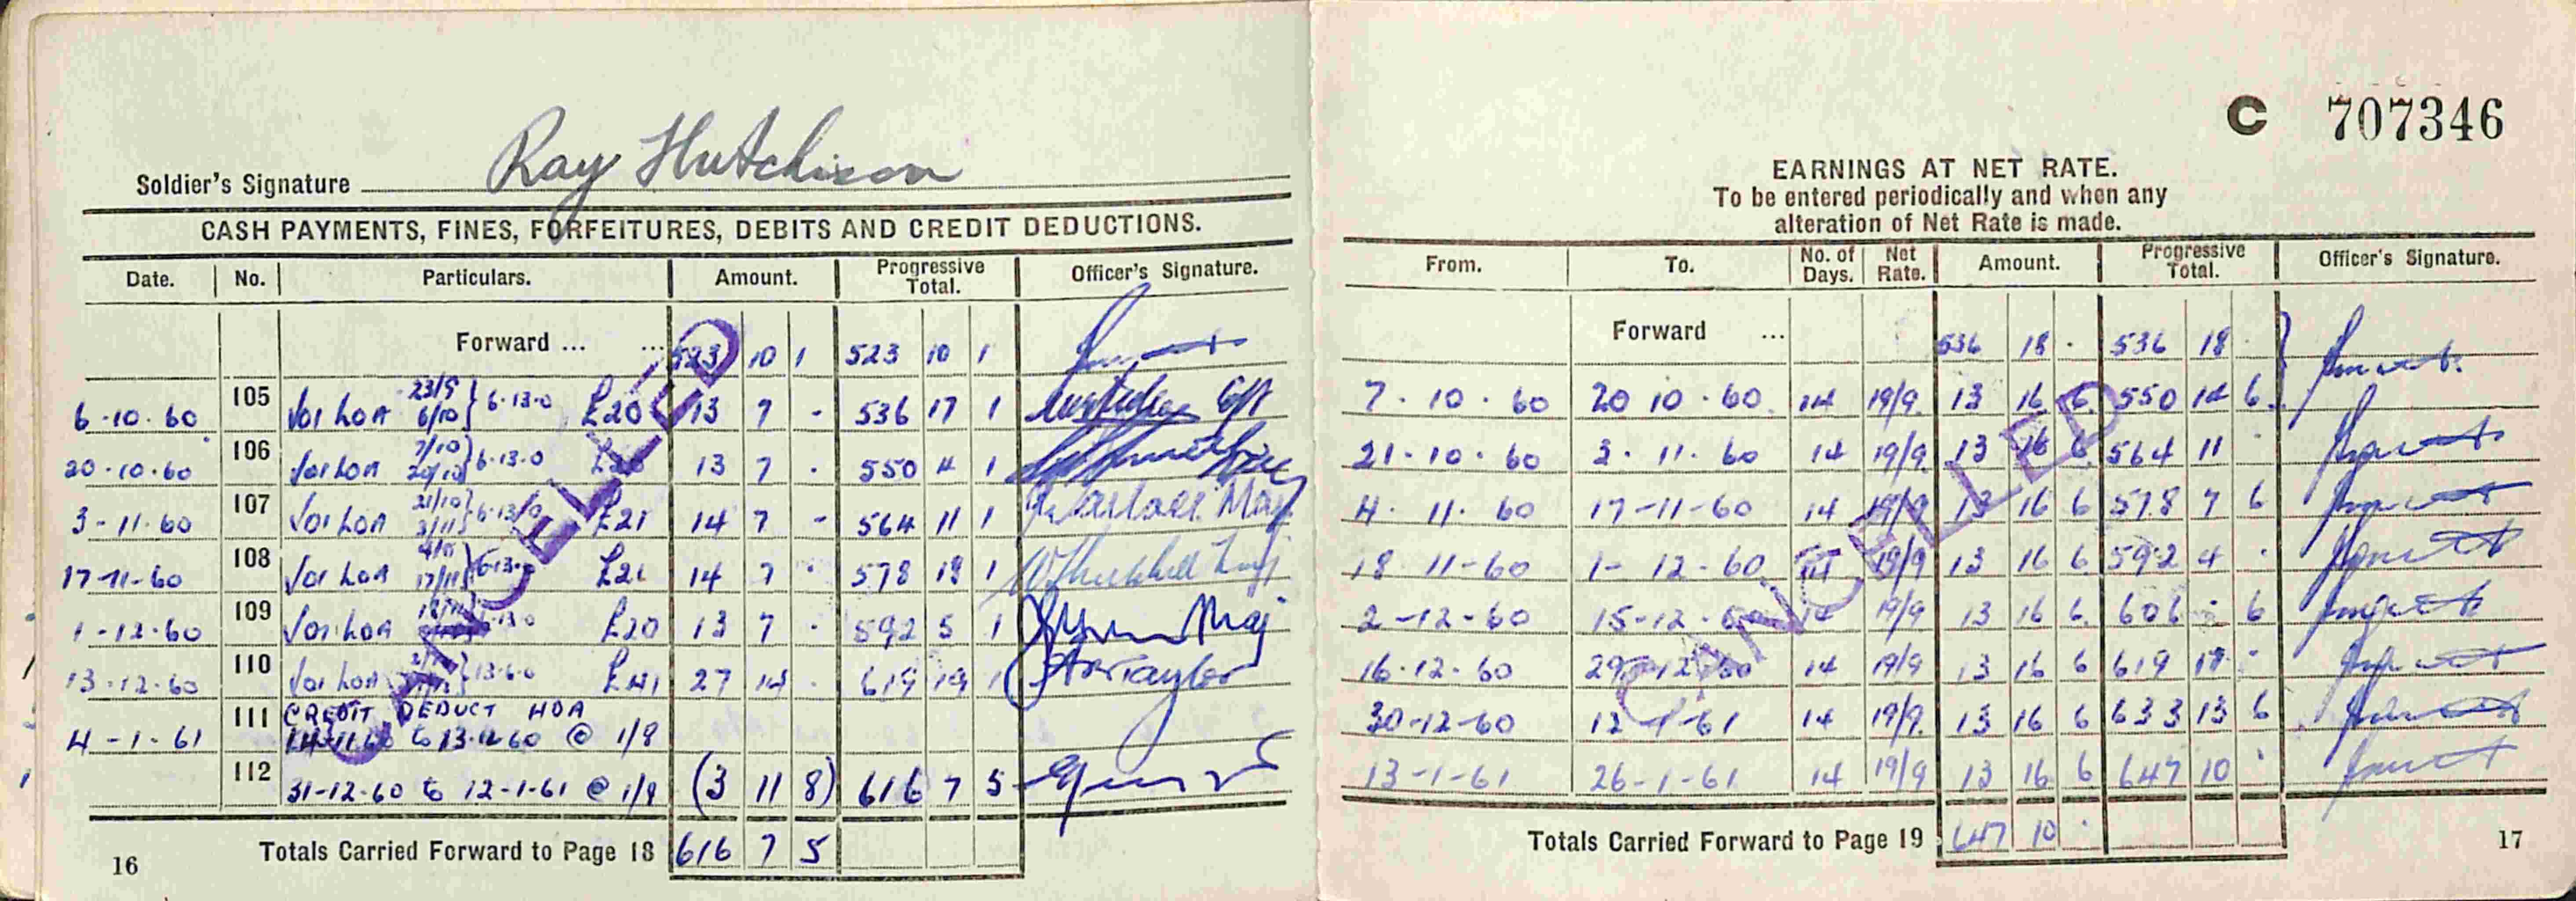 C 707346
Soldier's Signature Ray Hutchison
CASH PAYMENTS, FINES, FORFEITURES, DEBITS AND CREDIT DEDUCTIONS.
Date. No. Particulars. Amount. Progressive Total. Officer's Signature.
Forward ... ... 523 10 1 523 10 1
6-10-60 105 23/9 6/10 } 6-13-0 £20 13 7 - 536 17 1
20-10-60 106 7/10 20/10 } 6-13-0 13 7 - 550 4 1
3-11-60 107 21/10 3/11 } 6-13-0 £21 14 7 - 564 11 1
17-11-60 108 4/11 17/11 } 6-13-0 £21 14 7 - 578 18 1
1-12-60 109 £20 13 7 - 592 5 1
13-12-60 110 } 13-6-0 £41 27 14 - 619 19 1 Taylor
4-1-61 111 CREDIT DEDUCT HDA
to 13-12-60 @ 1/8
112 31-12-60 to 12-1-61 @ 1/9 (3 11 8) 616 7 5
Totals Carried Forward to Page 18 616 7 5
16
CANCELLED
EARNINGS AT NET RATE.
To be entered periodically and when any
alteration of Net Rate is made.
From. To. No. of Days. Net Rate. Amount. Progressive Total. Officer's Signature.
Forward ... 536 18 - 536 18 -
7-10-60 20 10-60 14 19/9 13 16 6 550 14 6
21-10-60 3-11-60 14 19/9 13 16 6 564 11 -
4-11-60 17-11-60 14 19/9 13 16 6 578 7 6
18 11-60 1-12-60 14 19/9 13 16 6 592 4 -
2-12-60 15-12-60 14 19/9 13 16 6 606 - 6
16-12-60 29-12-60 14 19/9 13 16 6 619 17 -
30-12-60 12-1-61 14 19/9 13 16 6 633 13 6
13-1-61 26-1-61 14 19/9 13 16 6 647 10 -
Totals Carried Forward to Page 19 647 10 -
17
CANCELLED